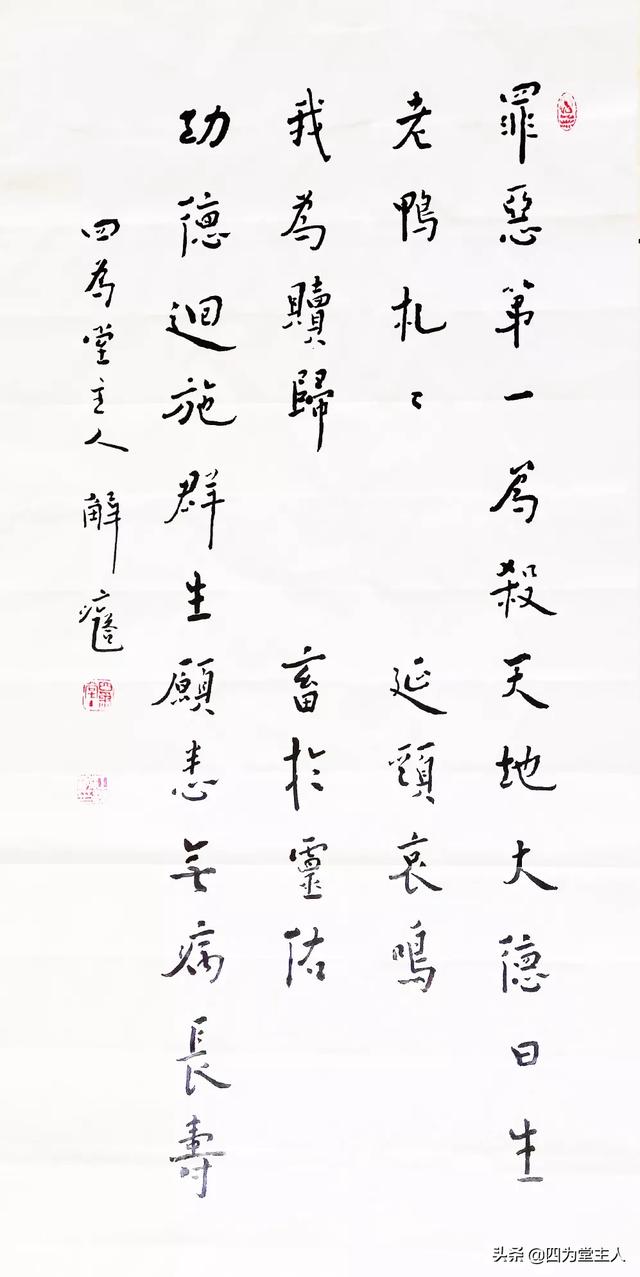 罪惡第一為殺天地大德曰生
老鴨札〻 延頸哀鳴
我為贖歸 畜於靈佑
功德迴施群生願悉無病長壽
四為堂主人 解
头条 @四为堂主人